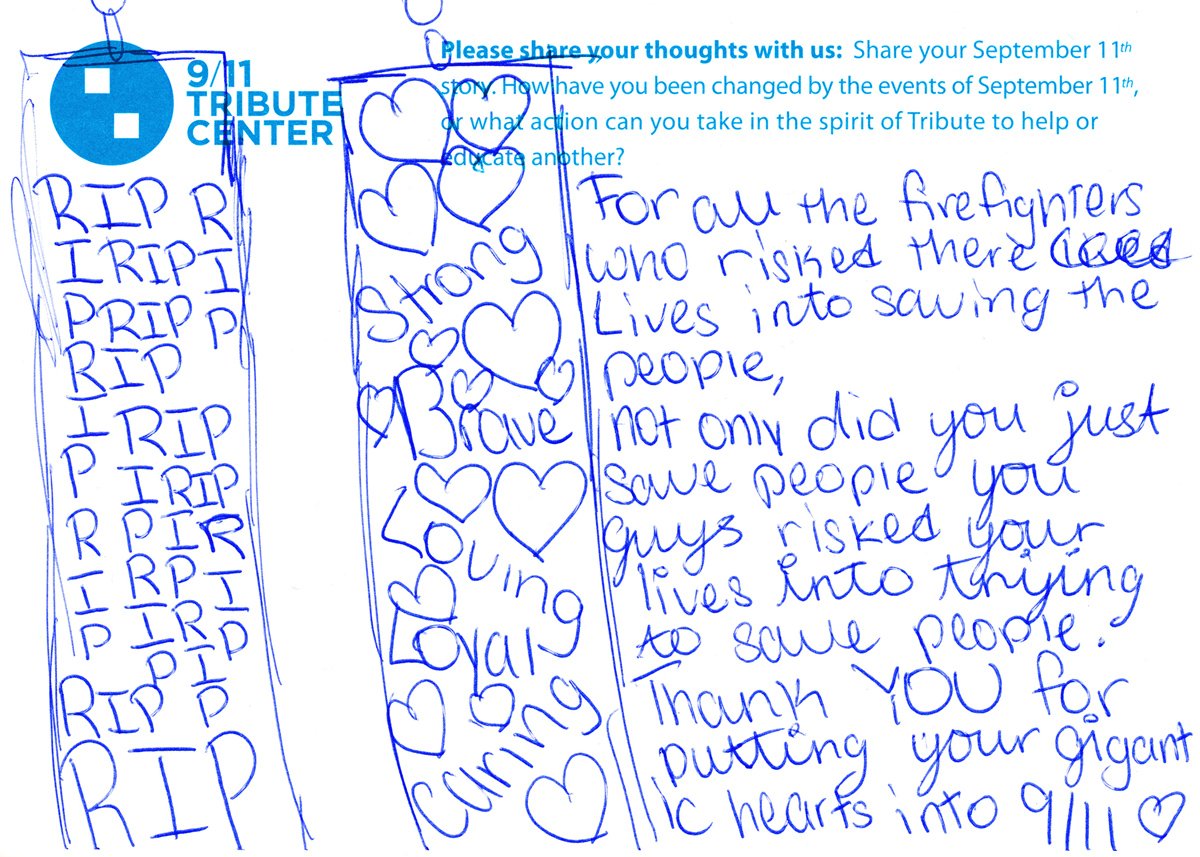 9/11
TRIBUTE
CENTER
Please share your thoughts with us: Share your September 11th
story. How have you been changed by the events of September 11th,
or what action can you take in the spirit of Tribute to help or
educate another?
RIP R
I RIP I
P RIP P
RIP
I RIP
P I RIP
R P I R
I R P I
P I R P
P I
RIP P
RIP
Strong
Brave
Loving
Loyal
Caring
For all the firefighters
who risked there
Lives into saving the
people,
not only did you just
save people you
guys risked your
lives into trying
to save people.
Thank YOU for
putting your gigant
ic hearts into 9/11